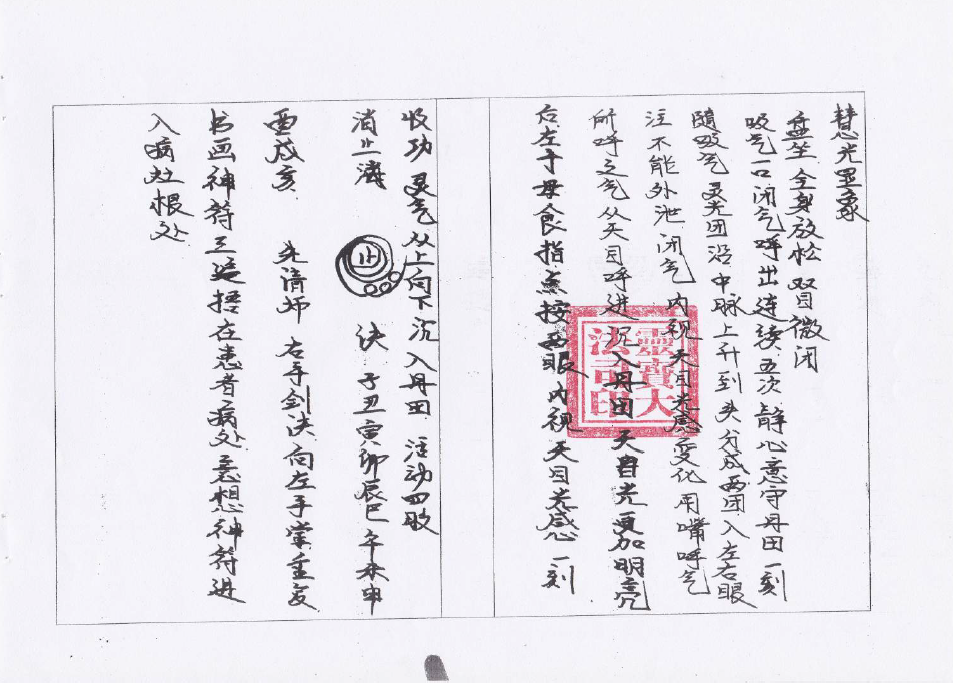 慧光显象
盘坐全身放松双目微闭
吸气一口闭气呼出连续五次静心意守丹田一刻
随吸气灵光团沿中脉上升到头分成两团入左右眼
注不能外泄闭气内视天目光感变化用嘴呼气
所呼之气从天目呼进沉入丹田天目光更加明亮
后左手母食指点按两眼内视天目光感一刻
收功灵气从上向下沉入丹田活动四肢
消止满 止 诀子丑寅卯辰巳午未申
酉戌亥 先请师右手剑诀向左手掌重复
书画神符三遍捂在患者病处意想神符进
入病灶根处
靈寶大
法司印